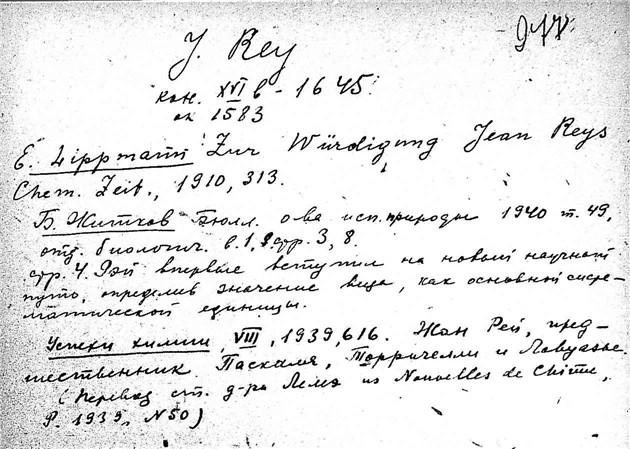 J. Rey
кон. XVI в - 1645.
ок 1583
E. Lippmann Zur Würdigung Jean Reys
Chem. Zeit., 1910, 313.
Б. Житков Бюлл. о-ва исп. природы 1940 т. 49,
отд. биологич. в. 1, стр. 3, 8.
стр. 4. Рэй впервые вступил на новый научный
путь, определив значение вида, как основной систе-
матической единицы.
Успехи химии, VIII, 1939, 616. Жан Рей, пред-
шественник Паскаля, Торричелли и Лавуазье.
(Перевод ст. д-ра Лемэ из Nouvelles de Chimie,
P. 1939, N 50)